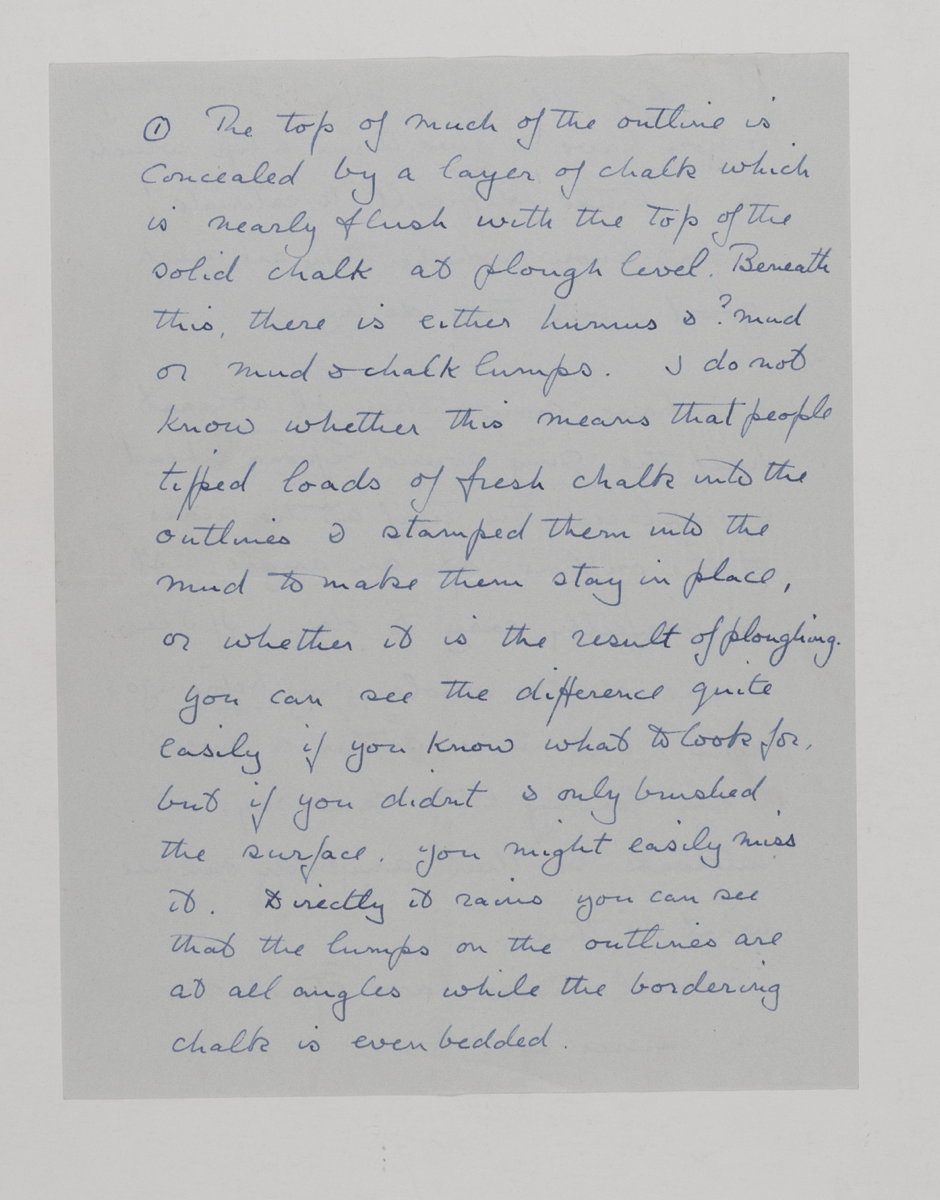 ① The top of much of the outline is
concealed by a layer of chalk which
is nearly flush with the top of the
solid chalk at plough level. Beneath
this, there is either humus & ? mud
or mud & chalk lumps. I do not
know whether this means that people
tipped loads of fresh chalk into the
outlines & stamped them into the
mud to make them stay in place,
or whether it is the result of ploughing.
You can see the difference quite
easily if you know what to look for,
but if you didnt & only brushed
the surface, you might easily miss
it. Directly it rains you can see
that the lumps on the outlines are
at all angles while the bordering
chalk is even bedded.